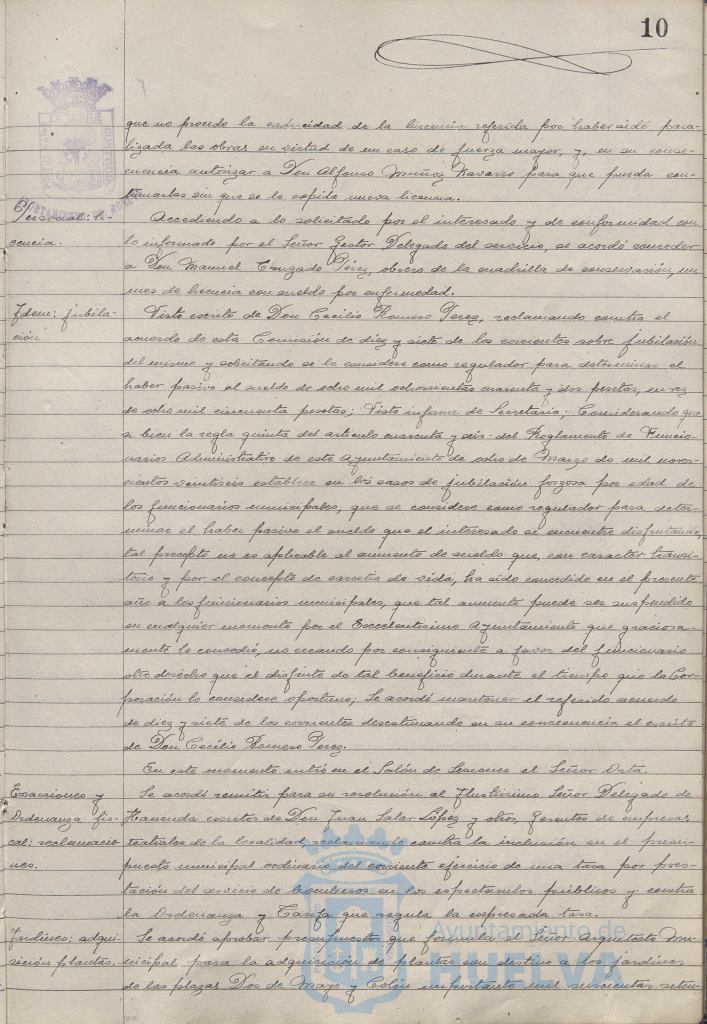 10
que no procede la caducidad de la lincencia referida por haber sido para-
lizada las obras en virtud de un caso de fuerza mayor, y, en su conse-
cuencia autorizar a Don Alfonso Muñoz Navarro para que pueda con-
tinuarlas sin que se le expida nueva licencia.
Personal: li-
cencia.
Accediendo a lo solicitado por el interesado y de conformidad con
lo informado por el Señor Gestor Delegado del servicio, se acordó conceder
a Don Manuel Cruzado Pérez, obrero de la cuadrilla de conservación, un
mes de licencia con sueldo por enfermedad.
Idem: jubila-
ción
Visto escrito de Don Cecilio Romero Perez, reclamando contra el
acuerdo de esta Comisión de diez y siete de los corrientes sobre jubilación
del mismo y solicitando se le considere como regulador para determinar el
haber pasivo el sueldo de ocho mil ochocientas cuarenta y dos pesetas, en vez
de ocho mil cincuenta pesetas; Visto informe de Secretaría; Considerando que
si bien la regla quinta del articulo cuarenta y seis del Reglamento de Funcio-
narios Administrativo de este Ayuntamiento de ocho de Marzo de mil nove-
cientos veintiseis establece en los casos de jubilación forzosa por edad de
los funcionarios municipales, que se considere como regulador para deter-
minar el haber pasivo el sueldo que el interesado se encuentre disfrutando,
tal precepto no es aplicable al aumento de sueldo que, con caracter transi-
torio y por el concepto de carestia de vida, ha sido concedido en el presente
año a los funcionarios municipales, que tal aumento puede ser suspendido
en cualquier momento por el Excelentisimo Ayuntamiento que graciosa-
mente lo concedió, no creando por consiguiente a favor del funcionario
otro derecho que el disfrute de tal beneficio durante el tiempo que la Cor-
poración lo considere oportuno; Se acordó mantener el referido acuerdo
de diez y siete de los corrientes desestimando en su consecuencia el escrito
de Don Cecilio Romero Perez.
En este momento entró en el Salón de Sesiones el Señor Orta.
Exacciones y
Ordenanza fis-
cal: reclamacio-
nes.
Se acordó remitir para su resolución al Ilustrisimo Señor Delegado de
Hacienda escritos de Don Juan Salar López y otros, Gerentes de empresas
teatrales de la localidad, reclamando contra la inclusión en el presu-
puesto municipal ordinario del corriente ejercicio de una tasa por pres-
tación del servicio de bomberos en los espectaculos públicos y contra
la Ordenanza y Tarifa que regula la expresada tasa.
Jardines: adqui-
sición plantas.
Se acordó aprobar presupuestos que formula el Señor Arquitecto Mu-
nicipal para la adquisición de plantas con destino a los jardines
de las plazas Dos de Mayo y Colón importante mil seiscientas seten-
Ayuntamiento de
HUELVA